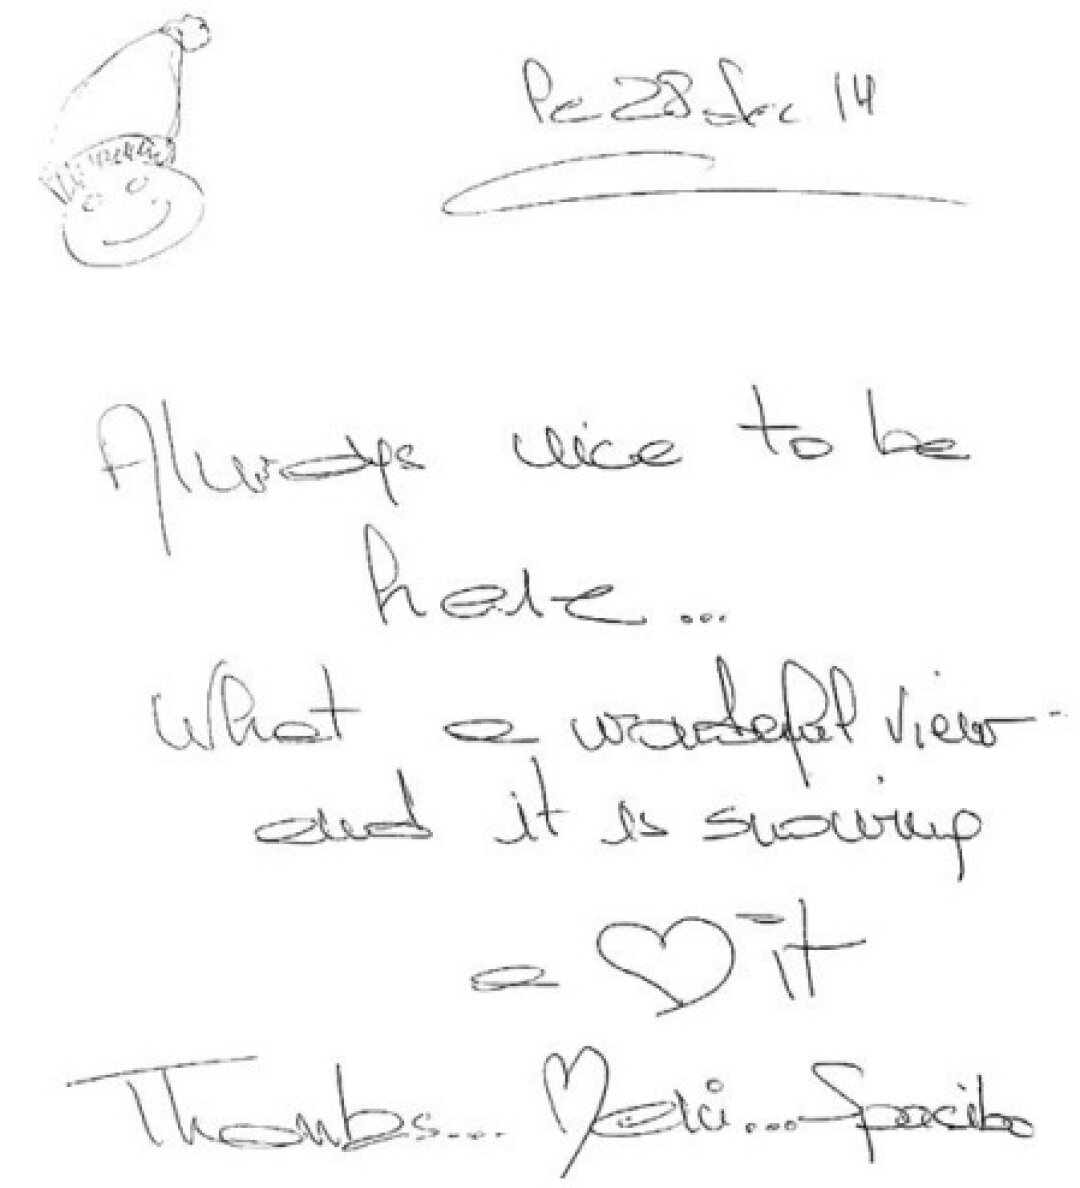 28 Dec 14
Always nice to be
here...
What a wonderful view -
and it is snowing
a ♡ it
Thanks... Merci... Spaciba